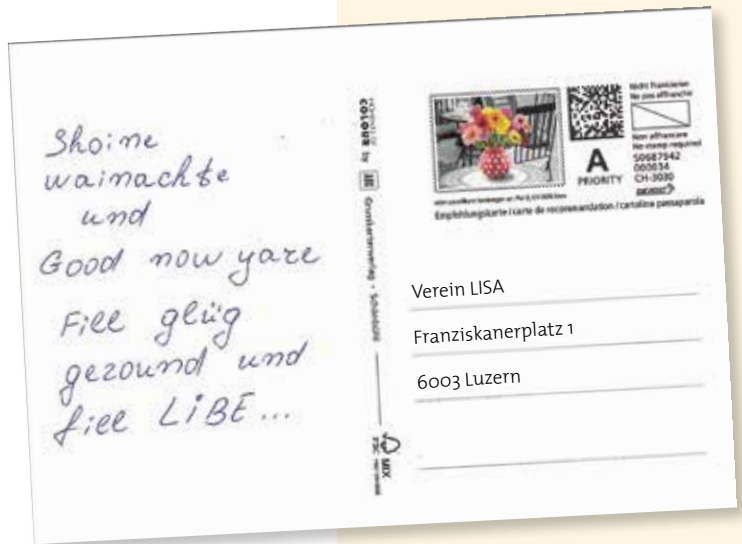 Shoine
wainachte
und
Good now yare
Fill glüg
gezound und
fill LiBE...
COLOUR by
Grusskartenverlag • Schönbühl
MIX
A
PRIORITY
Nicht frankieren
Ne pas affranchir
Non affrancare
No stamp required
50687942
000034
CH-3030
Empfehlungskarte / carte de recommandation / cartolina passaparola
Verein LISA
Franziskanerplatz 1
6003 Luzern